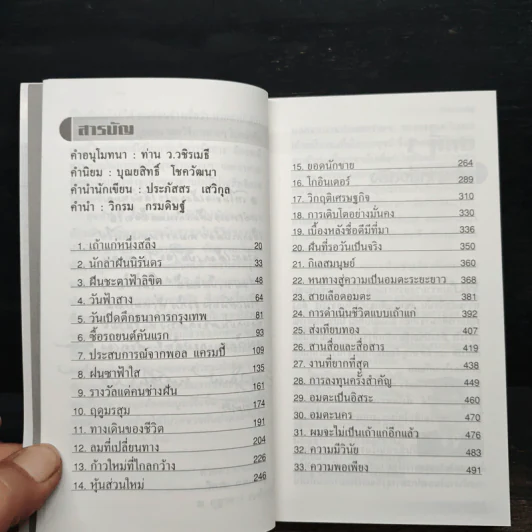 สารบัญ
คำอนุโมทนา : ท่าน ว.วชิรเมธี
คำนิยม : บุณยสิทธิ์ โชควัฒนา
คำนำนักเขียน : ประภัสสร เสวิกุล
คำนำ : วิกรม กรมดิษฐ์
1. เถ้าแก่หนึ่งสลึง 20
2. นักล่าฝันนิรันดร 33
3. ฝืนชะตาฟ้าลิขิต 48
4. วันฟ้าสาง 64
5. วันเปิดตึกธนาคารกรุงเทพ 81
6. ซื้อรถยนต์คันแรก 93
7. ประสบการณ์จากพอล แครมปี้ 109
8. ฝนซาฟ้าใส 135
9. รางวัลแด่คนช่างฝัน 161
10. ฤดูมรสุม 174
11. ทางเดินของชีวิต 191
12. ลมที่เปลี่ยนทาง 204
13. ก้าวใหม่ที่ไกลกว้าง 226
14. หุ้นส่วนใหม่ 246
15. ยอดนักขาย 264
16. โกอินเตอร์ 289
17. วิกฤติเศรษฐกิจ 310
18. การเติบโตอย่างมั่นคง 330
19. เบื้องหลังชื่อดีมีที่มา 336
20. ฝันที่รอวันเป็นจริง 350
21. กิเลสมนุษย์ 360
22. หนทางสู่ความเป็นอมตะระยะยาว 368
23. สายเลือดอมตะ 381
24. การดำเนินชีวิตแบบเถ้าแก่ 392
25. ส่งเทียบทอง 407
26. สานสื่อและสื่อสาร 419
27. งานที่ยากที่สุด 438
28. การลงทุนครั้งสำคัญ 449
29. อมตะเป็นอิสระ 460
30. อมตะนคร 470
31. ผมจะไม่เป็นเถ้าแก่อีกแล้ว 476
32. ความมีวินัย 483
33. ความพอเพียง 491